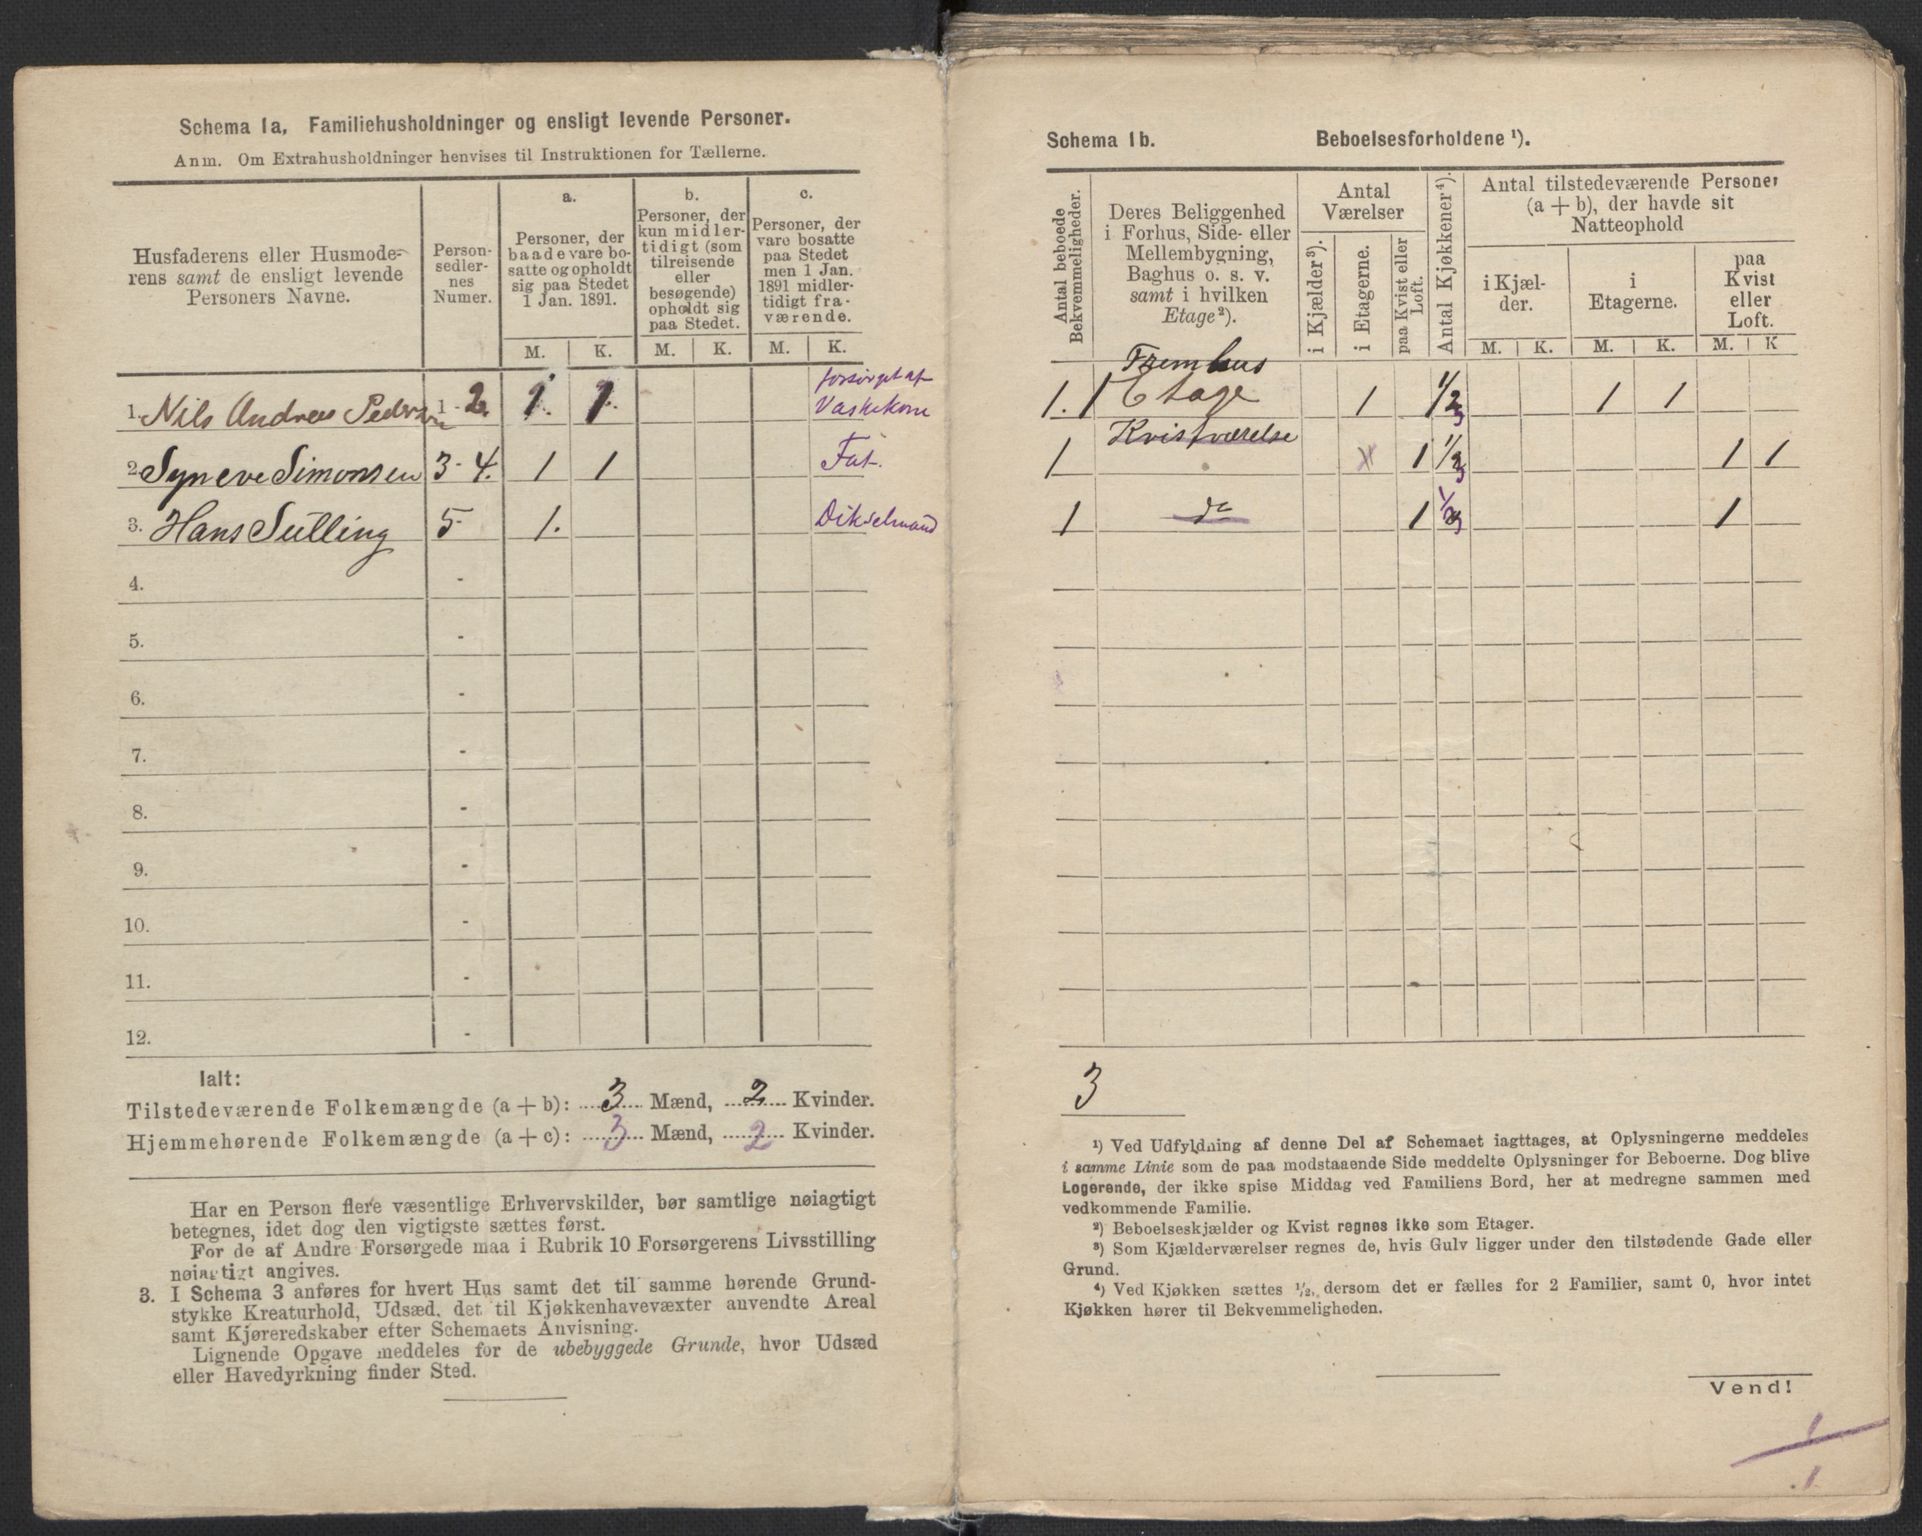 Schema 1a, Familiehusholdninger og ensligt levende Personer.
Anm. Om Extrahusholdninger henvises til Instruktionen for Tællerne.
Husfaderens eller Husmoderens samt de ensligt levende Personers Navne.
Personsedlernes Numer.
a.
Personer, der baade vare bosatte og opholdt sig paa Stedet 1 Jan. 1891.
b.
Personer, der kun midlertidigt (som tilreisende eller besøgende) opholdt sig paa Stedet.
c.
Personer, der vare bosatte paa Stedet men 1 Jan. 1891 midlertidigt fraværende.
M. K. M. K. M. K.
forsørget af
1. Nils Andreas Pedersen 1 - 2. 1. 1. Vaskekone
2. Syneve Simonsen 3 - 4. 1 1 Fat.
3. Hans Sulling 5 - 1.
4. -
5. -
6. -
7. -
8. -
9. -
10. -
11. -
12. -
Ialt:
Tilstedeværende Folkemængde (a + b): 3 Mænd, 2 Kvinder.
Hjemmehørende Folkemængde (a + c): 3 Mænd, 2 Kvinder.
Har en Person flere væsentlige Erhvervskilder, bør samtlige nøiagtigt
betegnes, idet dog den vigtigste sættes først.
For de af Andre Forsørgede maa i Rubrik 10 Forsørgerens Livsstilling
nøiagtigt angives.
3. I Schema 3 anføres for hvert Hus samt det til samme hørende Grund-
stykke Kreaturhold, Udsæd, det til Kjøkkenhavevæxter anvendte Areal
samt Kjøreredskaber efter Schemaets Anvisning.
Lignende Opgave meddeles for de ubebyggede Grunde, hvor Udsæd
eller Havedyrkning finder Sted.
Schema 1b. Beboelsesforholdene ¹).
Antal beboede Bekvemmeligheder.
Deres Beliggenhed i Forhus, Side- eller Mellembygning, Baghus o. s. v. samt i hvilken Etage²).
Antal Værelser
i Kjælder³).
i Etagerne.
paa Kvist eller Loft.
Antal Kjøkkener⁴).
Antal tilstedeværende Personer (a + b), der havde sit Natteophold
i Kjælder.
i Etagerne.
paa Kvist eller Loft.
M. K. M. K. M. K
Fremhus
1. 1 Etage 1 1/2 1 1
1 Kvistværelse 1 1/2 1 1
1 do 1 1/3 1
3
¹) Ved Udfyldning af denne Del af Schemaet iagttages, at Oplysningerne meddeles
i samme Linie som de paa modstaaende Side meddelte Oplysninger for Beboerne. Dog blive
Logerende, der ikke spise Middag ved Familiens Bord, her at medregne sammen med
vedkommende Familie.
²) Beboelseskjælder og Kvist regnes ikke som Etager.
³) Som Kjælderværelser regnes de, hvis Gulv ligger under den tilstødende Gade eller
Grund.
⁴) Ved Kjøkken sættes 1/2, dersom det er fælles for 2 Familier, samt 0, hvor intet
Kjøkken hører til Bekvemmeligheden.
Vend!
1
1